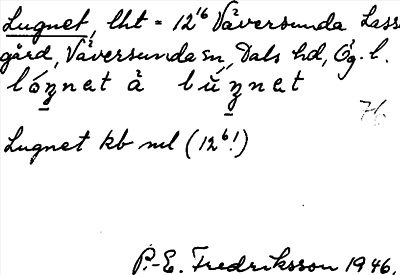 Lugnet, lht = 12¹⁶ Väversunda Lass
gård, Väversunda sn, Dals hd, Ög. l.
lóŋnet à lŭŋnet
Lugnet kb ml (12⁶!)
P.-E. Fredriksson 1946.